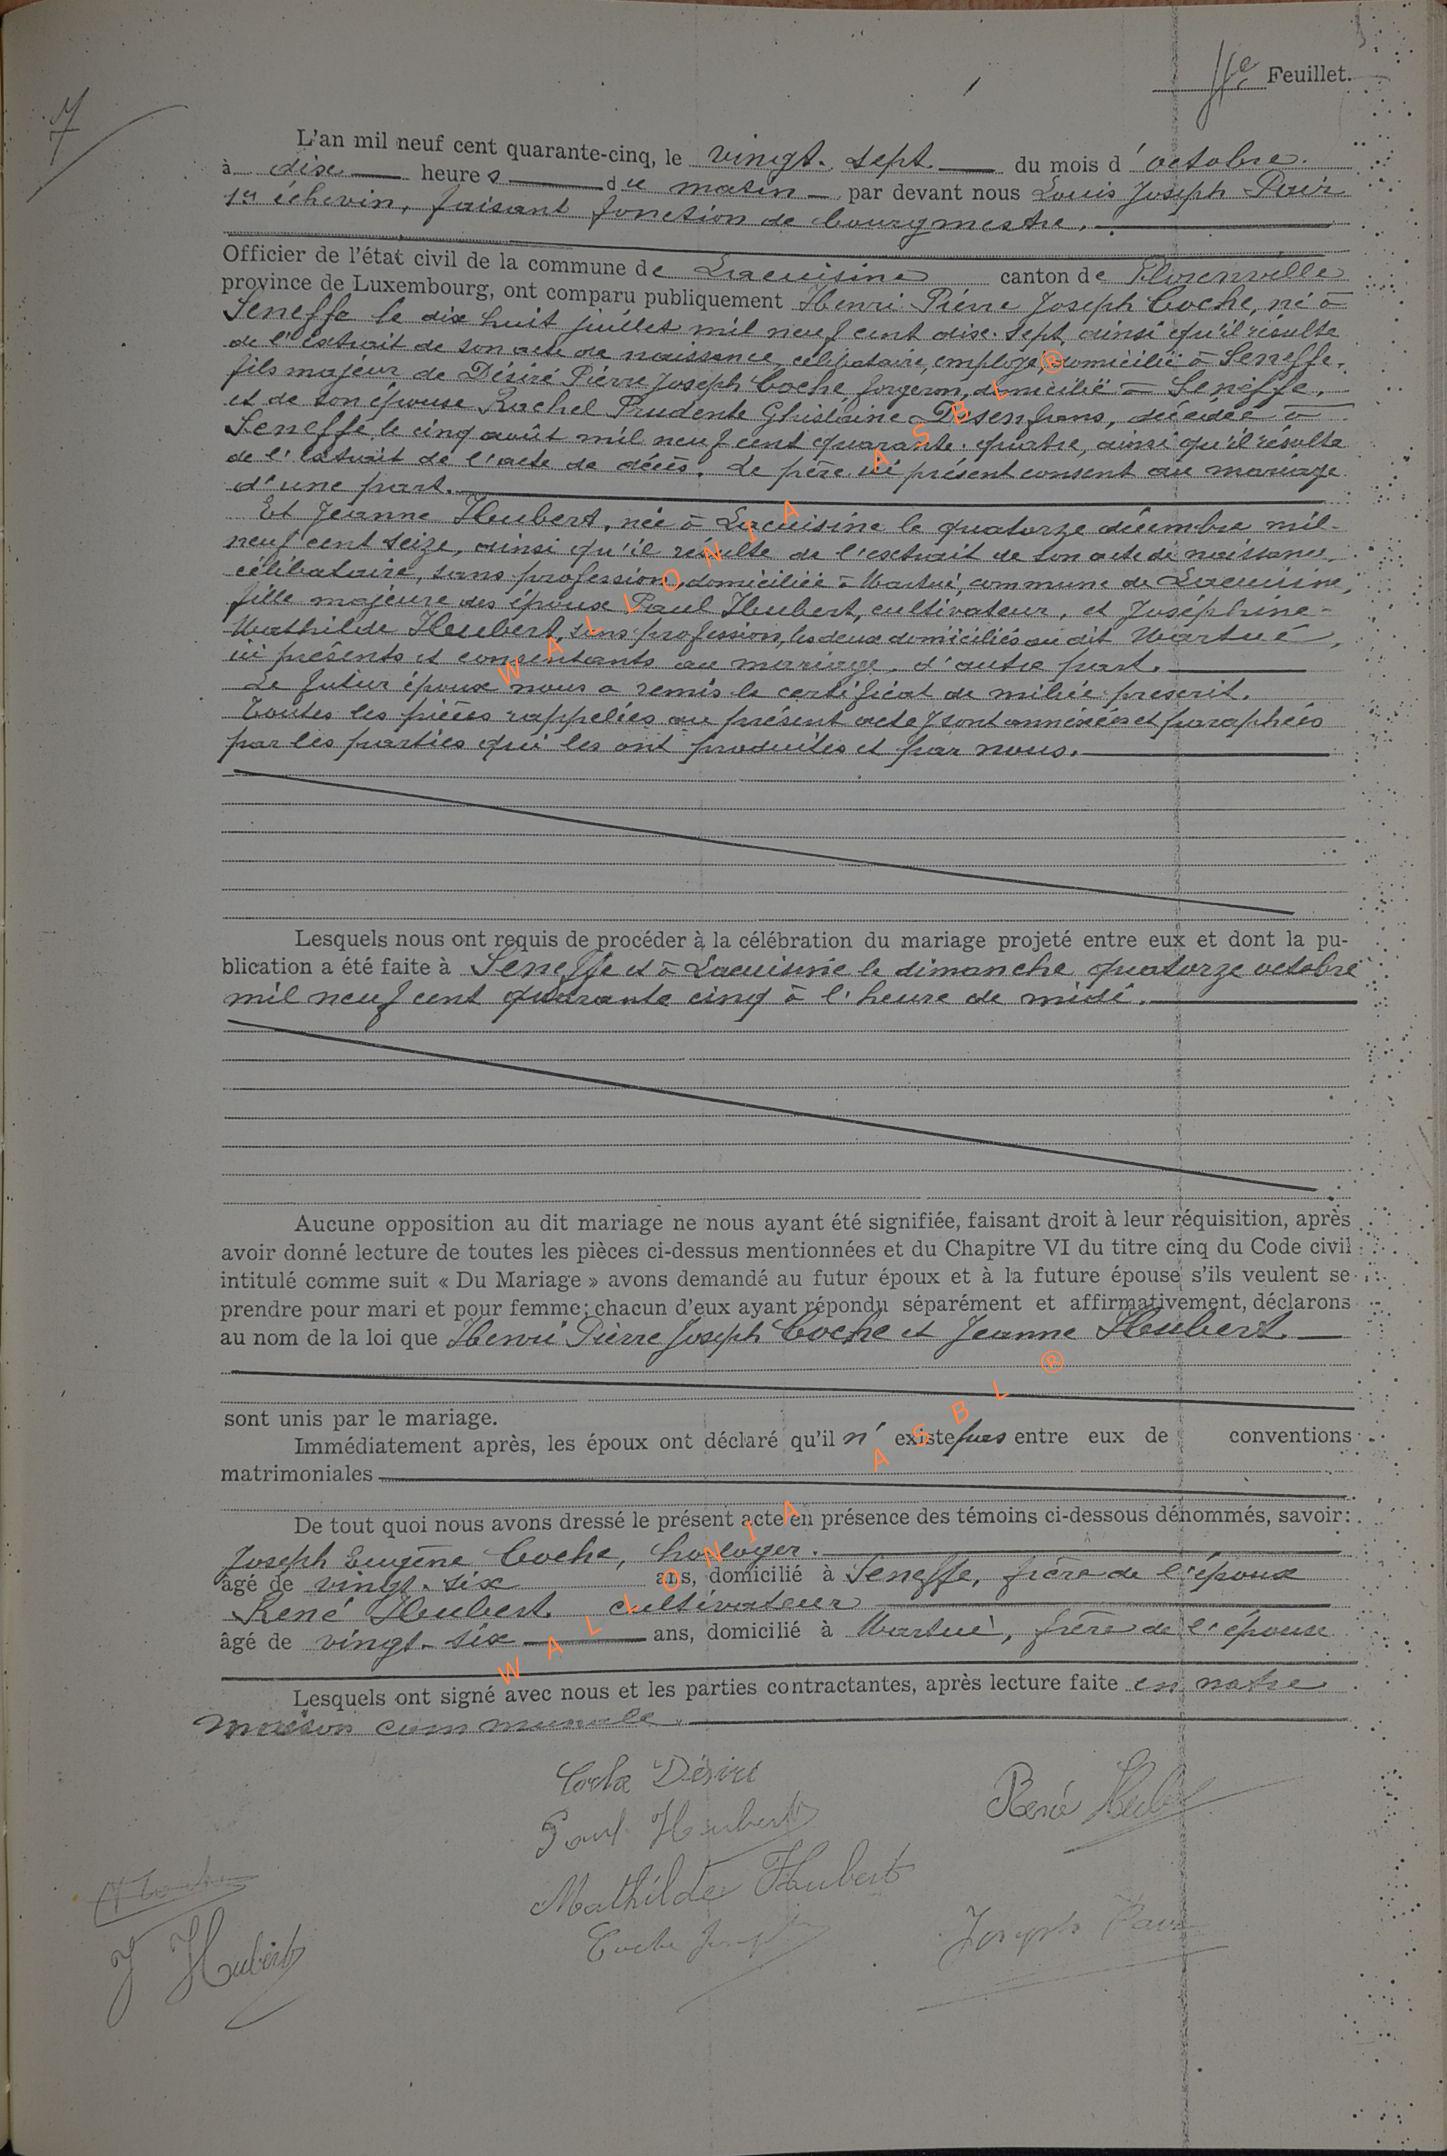 Feuillet.
7
L'an mil neuf cent quarante-cinq, le vingt-sept du mois d'octobre.
à dix heures du matin par devant nous Louis Joseph
1er échevin, faisant fonction de bourgmestre.
Officier de l'état civil de la commune de Lacuisine canton de Florenville
province de Luxembourg, ont comparu publiquement Henri Pierre Joseph Coche, né à
Seneffe le dix huit juillet mil neuf cent dix-sept, ainsi qu'il résulte
de l'extrait de son acte de naissance, célibataire, employé, domicilié à Seneffe,
fils majeur de Désiré Pierre Joseph Coche forgeron, domicilié à Seneffe,
et de son épouse Rachel Prudente Ghislaine Dosenfans, décédée à
Seneffe, le cinq août mil neuf cent quarante-quatre, ainsi qu'il résulte
de l'extrait de l'acte de décès. Le père ici présent consent au mariage
d'une part.
Et Jeanne Hubert, née à Lacuisine le quatorze décembre mil-
neuf cent seize, ainsi qu'il résulte de l'extrait de son acte de naissance,
célibataire, sans profession, domiciliée à Martué, commune de Lacuisine,
fille majeure des époux Paul Hubert, cultivateur, et Joséphine-
Mathilde Hubert, sans profession, les deux domiciliés au dit Martué,
ici présents et consentants au mariage, d'autre part.
Le futur époux nous a remis le certificat de milice prescrit.
Toutes les pièces rappelées au présent acte y sont annexées et paraphées
par les parties qui les ont produites et par nous.
Lesquels nous ont requis de procéder à la célébration du mariage projeté entre eux et dont la pu-
blication a été faite à Seneffe et à Lacuisine le dimanche quatorze octobre
mil neuf cent quarante cinq à l'heure de midi.
Aucune opposition au dit mariage ne nous ayant été signifiée, faisant droit à leur réquisition, après
avoir donné lecture de toutes les pièces ci-dessus mentionnées et du Chapitre VI du titre cinq du Code civil
intitulé comme suit « Du Mariage » avons demandé au futur époux et à la future épouse s'ils veulent se
prendre pour mari et pour femme; chacun d'eux ayant répondu séparément et affirmativement, déclarons
au nom de la loi que Henri Pierre Joseph Coche et Jeanne Hubert
sont unis par le mariage.
Immédiatement après, les époux ont déclaré qu'il n'existe pas entre eux de conventions
matrimoniales
De tout quoi nous avons dressé le présent acte en présence des témoins ci-dessous dénommés, savoir:
Joseph Eugène Coche, horloger.
âgé de vingt-six ans, domicilié à Seneffe, frère de l'époux
René Hubert cultivateur
âgé de vingt-six ans, domicilié à Martué, frère de l'épouse
Lesquels ont signé avec nous et les parties contractantes, après lecture faite en notre
maison communale.
Coche Désiré
Paul Hubert
René Hubert
Mathilde Hubert
Coche Joseph
J Hubert
Joseph
WALLONIA ASBL ®
WALLONIA ASBL ®